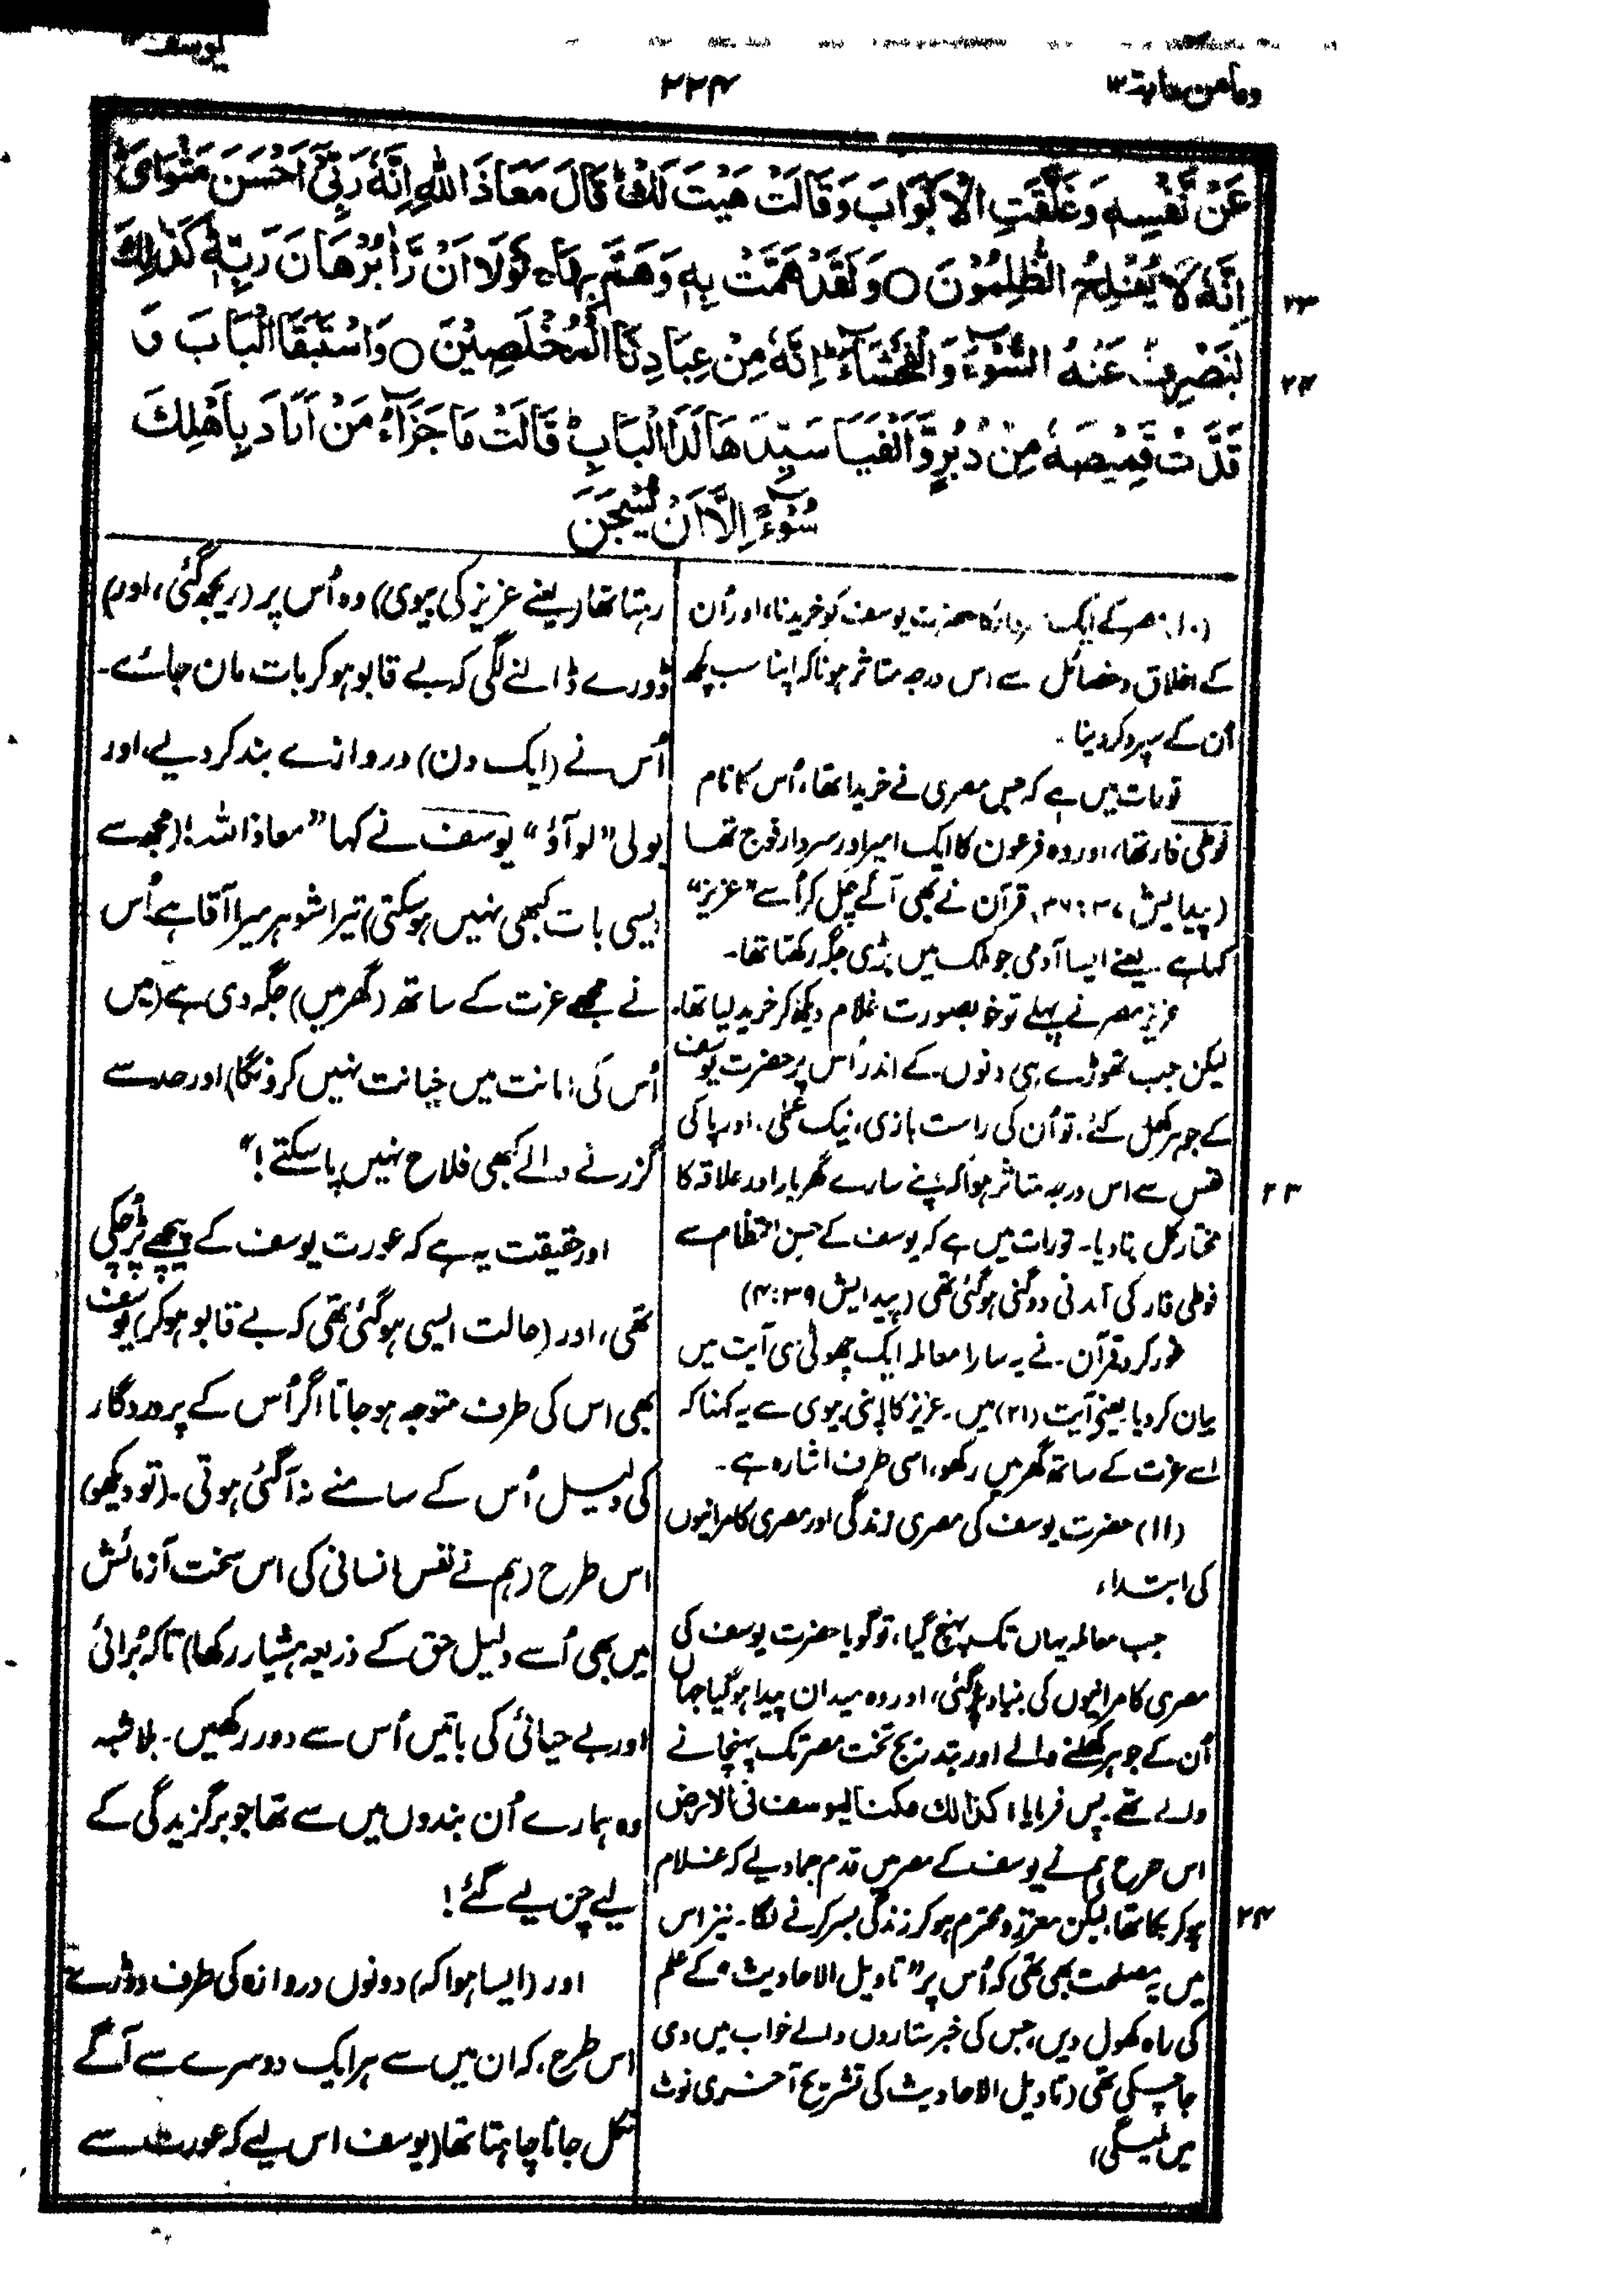 وما من دابۃ ۱۲
۲۲۴
یوسف ۱۲
عَنْ نَّفْسِهٖ وَغَلَّقَتِ الْاَبْوَابَ وَقَالَتْ هَيْتَ لَكَ ؕ قَالَ مَعَاذَ اللّٰهِ اِنَّهٗ رَبِّيْٓ اَحْسَنَ مَثْوَايَ ؕ
اِنَّهٗ لَا يُفْلِحُ الظّٰلِمُوْنَ ○ وَلَقَدْ هَمَّتْ بِهٖ وَهَمَّ بِهَا ۚ لَوْلَآ اَنْ رَّاٰ بُرْهَانَ رَبِّهٖ ؕ كَذٰلِكَ
۲۳
لِنَصْرِفَ عَنْهُ السُّوْٓءَ وَالْفَحْشَآءَ ؕ اِنَّهٗ مِنْ عِبَادِنَا الْمُخْلَصِيْنَ ○ وَاسْتَبَقَا الْبَابَ وَ
۲۴
قَدَّتْ قَمِيْصَهٗ مِنْ دُبُرٍ وَّاَلْفَيَا سَيِّدَهَا لَدَا الْبَابِ ؕ قَالَتْ مَا جَزَآءُ مَنْ اَرَادَ بِاَهْلِكَ
سُوْٓءًا اِلَّآ اَنْ يُّسْجَنَ
(۱۰) مصر کے ایک سردار کا حضرت یوسف کو خریدنا، اور اُن
کے اخلاق و خصائل سے اس درجہ متاثر ہونا کہ اپنا سب کچھ
اُن کے سپرد کر دینا۔
تورات میں ہے کہ جس مصری نے خریدا تھا، اُس کا نام
فوطی فار تھا، اور وہ فرعون کا ایک امیر اور سردار فوج تھا
(پیدایش ۳۷: ۳۶) قرآن نے بھی آگے چل کر اُسے "عزیز"
کہا ہے۔ یعنے ایسا آدمی جو ملک میں بڑی جگہ رکھتا تھا۔
عزیز مصر نے پہلے تو خوبصورت غلام دیکھ کر خرید لیا تھا۔
لیکن جب تھوڑے ہی دنوں کے اندر اُس پر حضرت یوسف
کے جوہر کھل گئے، تو اُن کی راست بازی، نیک عملی، اور پاکی
نفس سے اس درجہ متاثر ہوا کہ اپنے سارے گھر بار اور علاقہ کا
مختار کل بنا دیا۔ تورات میں ہے کہ یوسف کے حسن انتظام سے
فوطی فار کی آمدنی دوگنی ہو گئی تھی (پیدایش ۳۹: ۴)
غور کرو قرآن نے یہ سارا معاملہ ایک چھوٹی سی آیت میں
بیان کر دیا یعنی آیت (۲۱) میں۔ عزیز کا اپنی بیوی سے یہ کہنا کہ
اسے عزت کے ساتھ گھر میں رکھو، اسی طرف اشارہ ہے۔
(۱۱) حضرت یوسف کی مصری زندگی اور مصری کامرانیوں
کی ابتداء
جب معاملہ یہاں تک پہنچ گیا، تو گویا حضرت یوسف کی
مصری کامرانیوں کی بنیاد پڑ گئی، اور وہ میدان پیدا ہو گیا جہاں
اُن کے جوہر کھلنے والے اور بتدریج تخت مصر تک پہنچانے
والے تھے۔ پس فرمایا: کذالک مکنا لیوسف فی الارض
اس طرح ہم نے یوسف کے مصر میں قدم جما دیے کہ غلام
ہو کر بکا تھا، لیکن معزز و محترم ہو کر زندگی بسر کرنے لگا۔ نیز اس
میں یہ مصلحت بھی تھی کہ اُس پر "تاویل الاحادیث" کے علم
کی راہ کھول دیں، جس کی خبر ستاروں والے خواب میں دی
جا چکی تھی (تاویل الاحادیث کی تشریح آخری نوٹ
میں ملیگی)
رہتا تھا (یعنے عزیز کی بیوی) وہ اُس پر (ریجھ گئی، اور)
ڈورے ڈالنے لگی کہ بے قابو ہو کر بات مان جائے۔
اُس نے (ایک دن) دروازے بند کر دیے، اور
بولی "لو آؤ" یوسف نے کہا "معاذ اللہ! (مجھ سے
ایسی بات کبھی نہیں ہو سکتی) تیرا شوہر میرا آقا ہے، اُس
نے مجھے عزت کے ساتھ (گھر میں) جگہ دی ہے (میں
اُس کی امانت میں خیانت نہیں کرونگا) اور حد سے
گزرنے والے کبھی فلاح نہیں پا سکتے!"
۲۳
اور حقیقت یہ ہے کہ عورت یوسف کے پیچھے پڑ چکی
تھی، اور (حالت ایسی ہو گئی تھی کہ بے قابو ہو کر) یوسف
بھی اس کی طرف متوجہ ہو جاتا اگر اُس کے پروردگار
کی دلیل اُس کے سامنے نہ آ گئی ہوتی۔ (تو دیکھو)
اس طرح (ہم نے نفس انسانی کی اس سخت آزمائش
میں بھی اُسے دلیل حق کے ذریعہ ہشیار رکھا) تاکہ بُرائی
اور بے حیائی کی باتیں اُس سے دور رکھیں۔ بلا شبہ
وہ ہمارے اُن بندوں میں سے تھا جو برگزیدگی کے
لیے چن لیے گئے!
۲۴
اور (ایسا ہوا کہ) دونوں دروازہ کی طرف دوڑے
اس طرح، کہ ان میں سے ہر ایک دوسرے سے آگے
نکل جانا چاہتا تھا (یوسف اس لیے کہ عورت سے